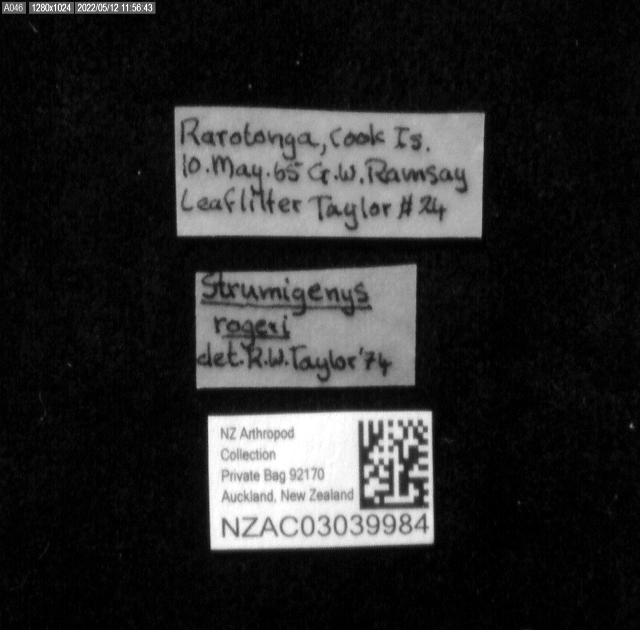 A046 1280x1024 2022/05/12 11:56:43
Rarotonga, Cook Is.
10.May.65 G.W.Ramsay
Leaflitter Taylor #24
Strumigenys
rogeri
det. R.W.Taylor '74
NZ Arthropod
Collection
Private Bag 92170
Auckland, New Zealand
NZAC03039984